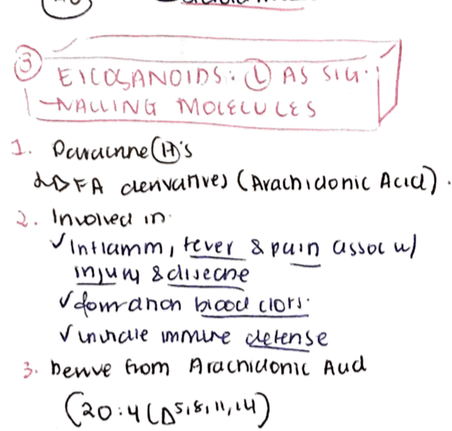 ③ EICOSANOIDS: Ⓛ AS SIG-
NALLING MOLECULES
1. Paracrine Ⓗ's
↳ FA derivatives (Arachidonic Acid).
2. Involved in:
✓ Inflamm, fever & pain assoc w/
injury & disease
✓ formation blood clots.
✓ initiate immune defense
3. Derive from Arachidonic Acid
(20:4 (Δ5,8,11,14)